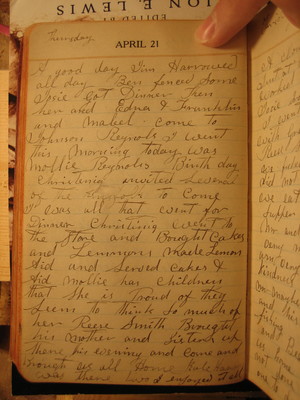 ION E. LEWIS
EDITED BY
Thursday
APRIL 21
A good day Jim Harrowed
all day Ben fenced some
Josie Eat Dinner then
her and Edna & Franklin
and mabel come to
Johnson Reynols I went
this morning today was
mollie Reynolds Birth day
Christenia invited several
of the to Come
I was all that went for
Dinner Christing went to
the Store and Bought Cakes
and Lemmons Made Lemon
Aid and Served Cakes &
Aid mollie has Childrens
that She is Proud of they
Seem to think So much of
her Reese Smith Brought
his Mother and Sisters up
there his evning and Come and
Brough us all Home
was there two I enjoyed